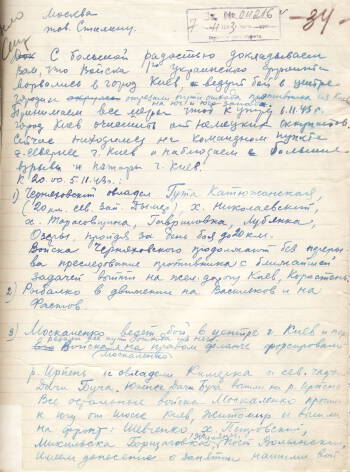 Москва
тов. Сталину.
Вх. № 01216
-34-
С большой радостью докладываем
Вам, что войска 1 Украинского фронта
ворвались в город Киев и ведут бой в центре
города
на юг и юго запад.
Принимаем все меры чтоб к утру 6.11.43 г.
город Киев очистить от немецких оккупантов.
Сейчас находимся на командном пункте
севернее г. Киев и наблюдаем большие
взрывы и пожары г. Киев.
К 20.00. 5.11.43 г.
1) Черняховский овладел Гута Катюжанская,
(20 км. сев. зап. Дымер), х. Николаевский,
х. Тарасовщина, Гавриловка, Лубянка,
Озеры, пройдя за день боя до 20 км.
Войска Черняховского продолжают без переры-
ва преследование противника с ближайшей
задачей выйти на жел. дорогу Киев, Коростень.
2) Рыбалко в движении на Васильков и на
Фастов.
3) Москаленко ведет бой в центре г. Киев и
войска на правом фланге форсировали
(Москаленко)
р. Ирпень и овладели
Дачи Буча. Южнее Дачи Буча вышли на р. Ирпень
Все остальные войска Москаленко прошли
к югу от шоссе Киев, Житомир и вышли
на фронт: Шевченко, х. Петровский,
Микильска Борщаговка,
Имеем донесение о занятии нашими вой